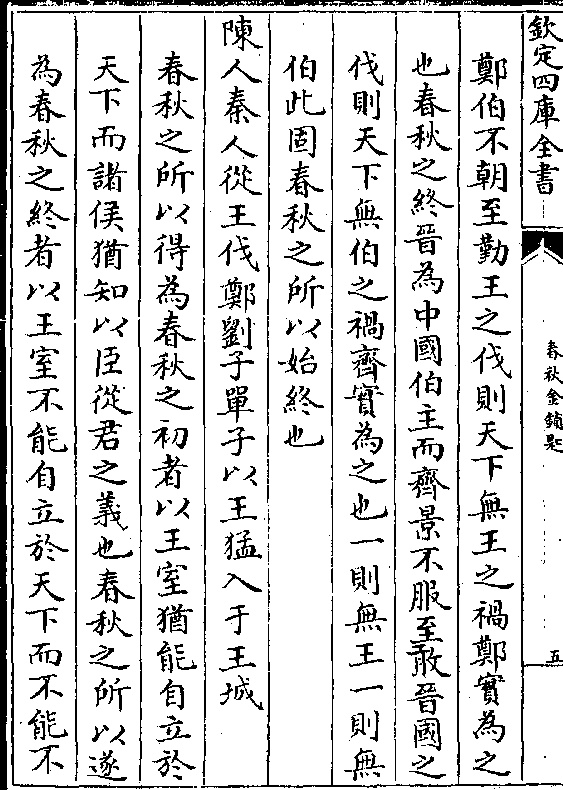 欽定四庫全書
春秋金鎖匙
五
鄭伯不朝至勤王之伐則天下無王之禍鄭實為之
也春秋之終晉為中國伯主而齊景不服至敢晉國之
伐則天下無伯之禍齊實為之也一則無王一則無
伯此固春秋之所以始終也
陳人秦人從王伐鄭劉子單子以王猛入于王城
春秋之所以得為春秋之初者以王室猶能自立於
天下而諸侯猶知以臣從君之義也春秋之所以遂
為春秋之終者以王室不能自立於天下而不能不